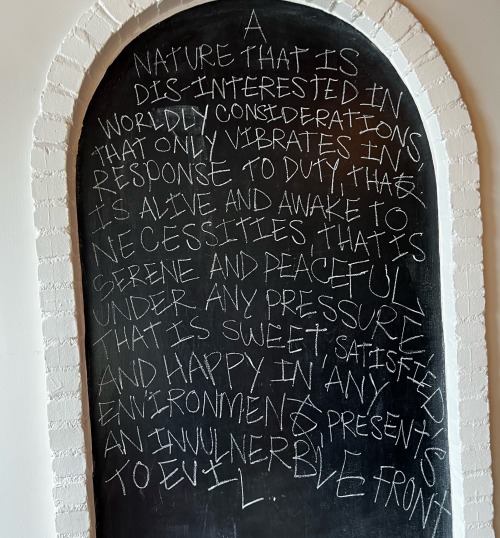 A
NATURE THAT IS
DIS-INTERESTED IN
WORLDLY CONSIDERATIONS,
THAT ONLY VIBRATES IN
RESPONSE TO DUTY, THAT
IS ALIVE AND AWAKE TO
NECESSITIES THAT IS
SERENE AND PEACEFUL
UNDER ANY PRESSURE
THAT IS SWEET SATISFIED
AND HAPPY IN ANY
ENVIRONMENT, PRESENTS
AN INVULNERBLE FRONT
TO EVIL...